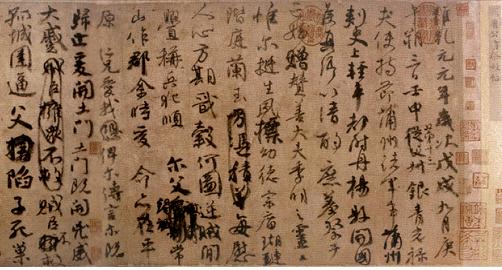 維乾元元年歲次戊戌九月庚
午朔三日壬申第十三叔銀青光祿
夫使持節蒲州諸軍事蒲州
刺史上輕車都尉丹楊縣開國
侯真卿以清酌庶羞祭于
亡姪贈贊善大夫季明之靈曰
惟爾挺生夙標幼德宗廟瑚璉
階庭蘭玉方憑積善每慰
人心方期戩穀何圖逆賊閒
釁稱兵犯順爾父常
山作郡余時受命亦在平
原仁兄愛我俾爾傳言爾既
歸止爰開土門土門既開凶威
大蹙賊臣擁衆不救
孤城圍逼父陷子死巢